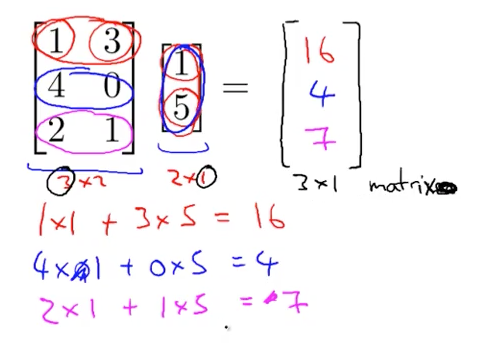 [1 3] [1] = [16]
[4 0] [5] [4]
[2 1] [7]
3×2 2×1 3×1 matrix
1×1 + 3×5 = 16
4×1 + 0×5 = 4
2×1 + 1×5 = 7